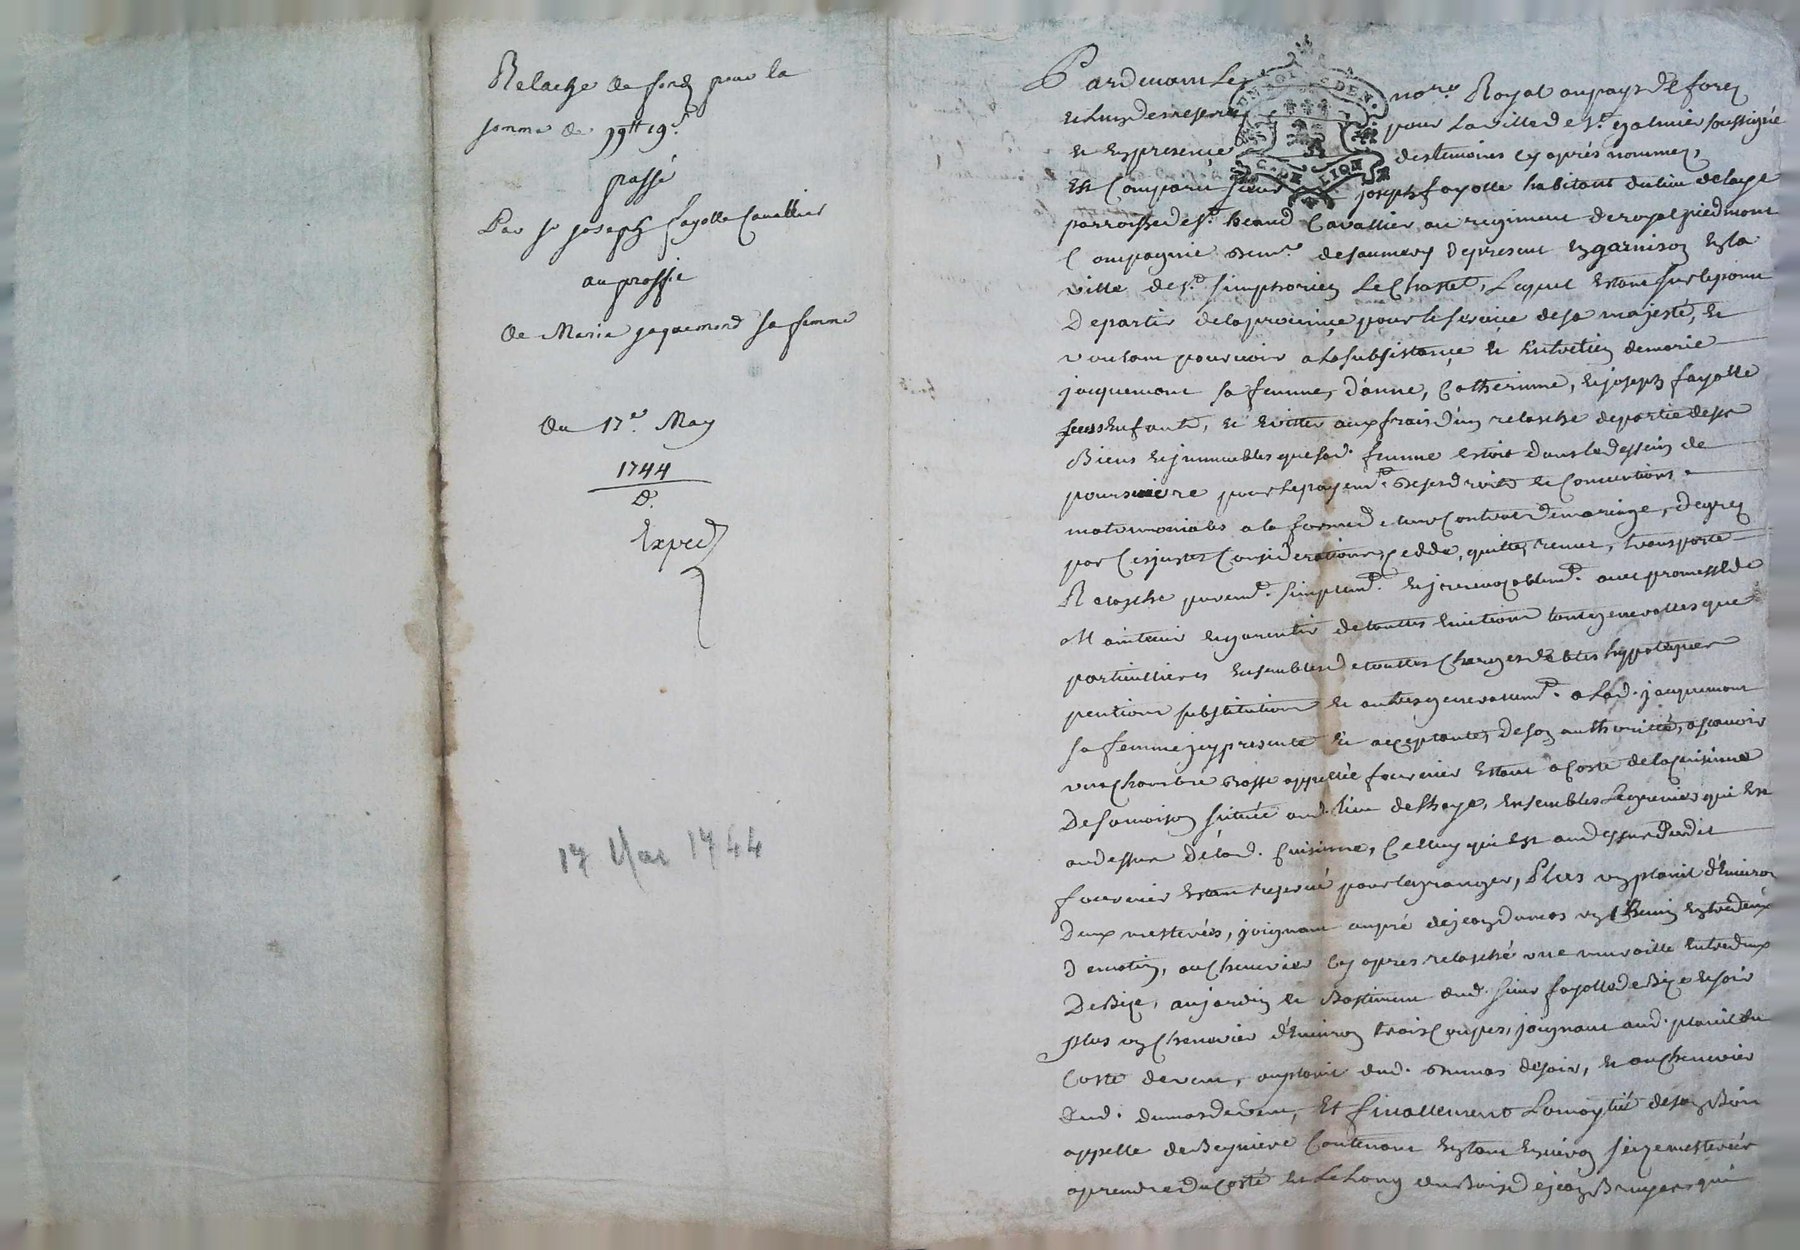 Relache de fond pour la
somme de 99tt 19s
passé
Par sr joseph fayolle Cavallier
au proffit
de Marie jaquemond sa femme
Du 17e. May
1744
Exped
17 Mai 1744
Pardevant Le nore. Royal au pays de forez
pour la ville de st. galmier soussigné
et en presence des temoins cy aprés nommez,
Est Comparu sieur joseph fayolle habitant du lieu de laye
parroisse de st. heand Cavallier au regiment de royal piedmont
Compagnie de mr. de saumery de present en garnison en la
ville de st. simphorien Le Chatel, Lequel Estant sur le point
De partir de la province pour le service de sa majesté, et
voulant pourvoir a la subsistance et Entretien de marie
jacquemont sa femme, d'anne, Catherinne, et joseph fayolle
ses Enfants, et Eviter aux frais d'un relasche de partie de ses
Biens et immeubles que sad. femme Estoit dans le dessein de
poursuivre pour le payemt. de ses droits et Conventions
matrimonialles a la forme de leur Contrat de mariage, de gré
par Ces justes Considerations, cedde, quitte, remet, transporte
Relasche puremt. simplemt. et irrevocablemt. avec promesse de
Maintenir et garentir de touttes Evictions tant generalles que
particullieres Ensembles de touttes Charges debtes hypoteques
pentions substitutions et autres generalemt. a lad. jacquemont
sa femme icy presente et acceptante, de son authorité, a sçavoir
une Chambre basse appellée fournier Estant a Coste de la Cuisinne
De sa maison située aud. lieu de Lhaye, Ensembles Le grenier qui Est
au dessus de lad. Cuisinne, Celluy qui Est au dessus dudit
fournier Estant reservé pour le granger, Plus un plat d'Environ
Deux mesterées, joignant au pré de jean dumas un Chemin Entredeux
de matin, au Chenevier cy apres relasché une muraille Entredeux
De Bize, au jardin et Bastiment dud. sieur fayolle de Bize et soir
plus un Chenevier d'Environ trois Coupes, joignant aud.
Coste de vent, dud. dumas de soir, et au Chenevier
dud. dumas de vent, Et finallement La moytié de son Bois
appelle de Contenant En tout Environ seize mesterées
a prendre du Costé et Le Long du Bois de jean qui